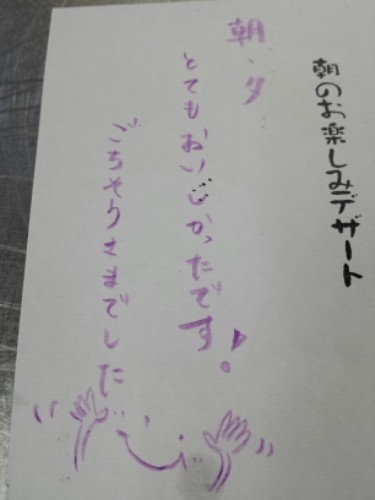 朝のお楽しみデザート
朝、夕
とてもおいしかったです!
ごちそうさまでした